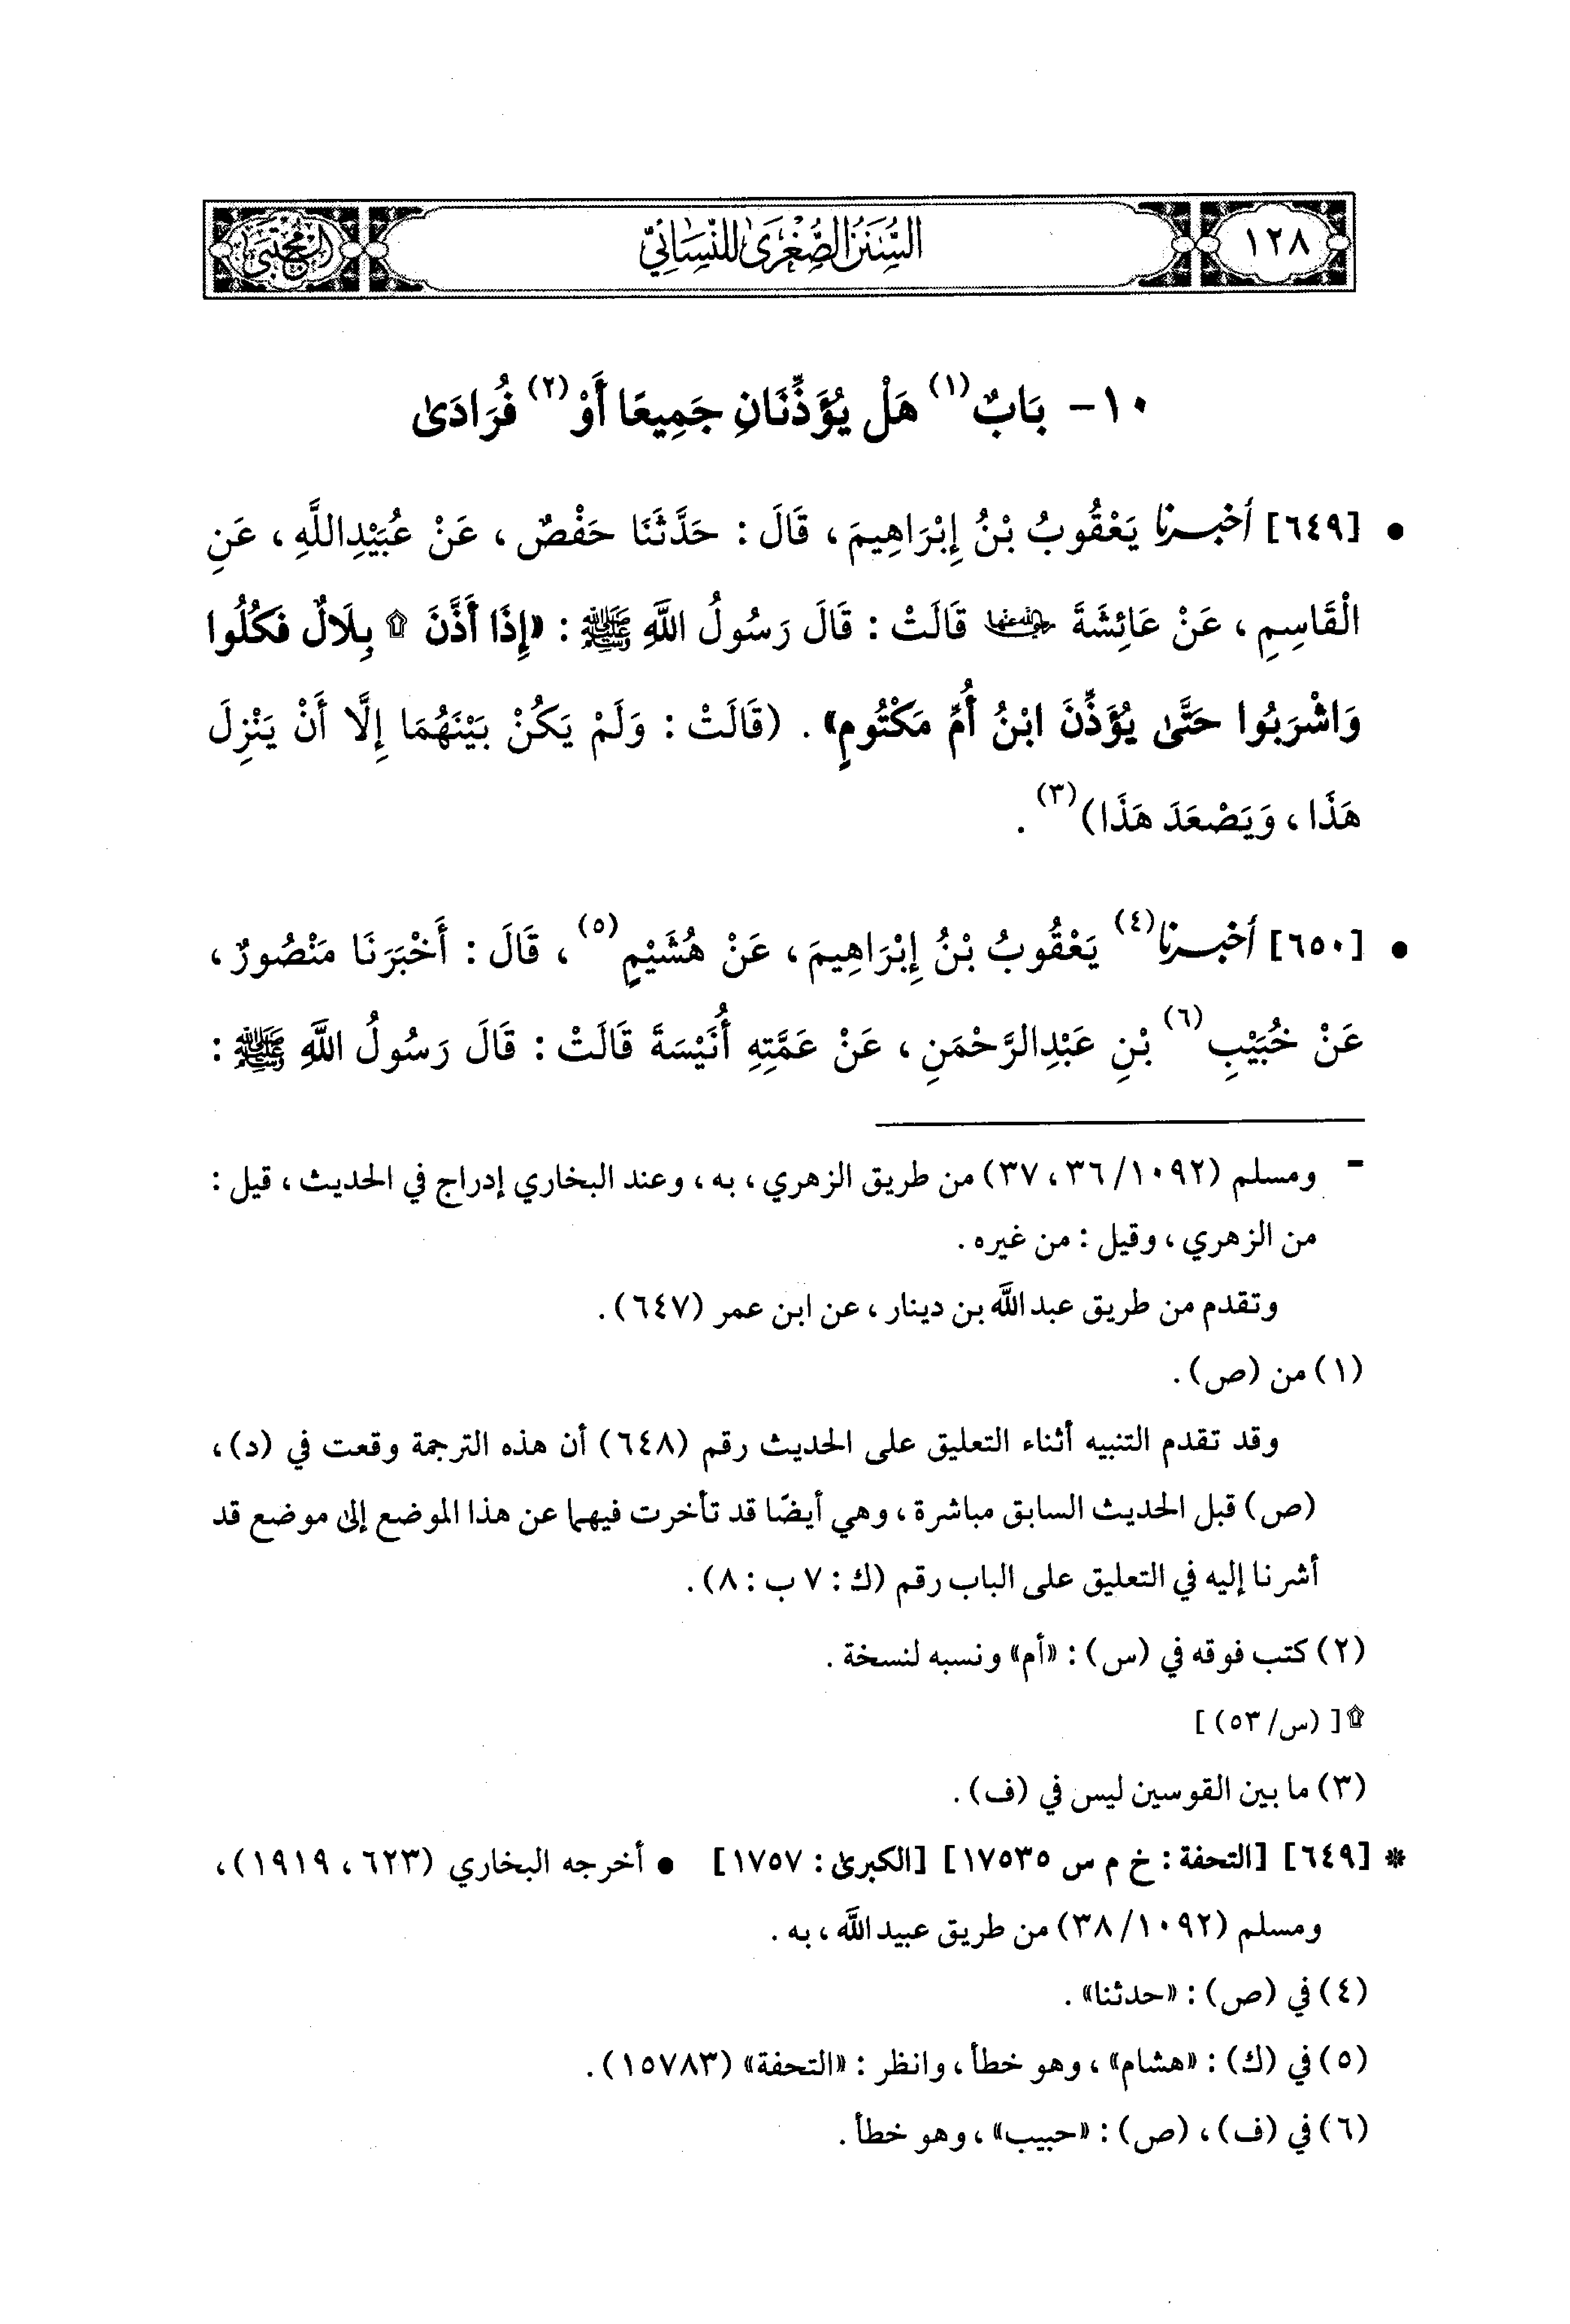 ١٢٨
السُّنَنُ الصُّغْرَىٰ لِلنَّسَائِيِّ
المجتبى
١٠- بَابٌ(١) هَلْ يُؤَذِّنَانِ جَمِيعًا أَوْ(٢) فُرَادَىٰ
• [٦٤٩] أخبرنا يَعْقُوبُ بْنُ إِبْرَاهِيمَ، قَالَ: حَدَّثَنَا حَفْصٌ، عَنْ عُبَيْدِاللَّهِ، عَنِ
الْقَاسِمِ، عَنْ عَائِشَةَ رضي الله عنها قَالَتْ: قَالَ رَسُولُ اللَّهِ ﷺ: «إِذَا أَذَّنَ ۩ بِلَالٌ فَكُلُوا
وَاشْرَبُوا حَتَّىٰ يُؤَذِّنَ ابْنُ أُمِّ مَكْتُومٍ». (قَالَتْ: وَلَمْ يَكُنْ بَيْنَهُمَا إِلَّا أَنْ يَنْزِلَ
هَذَا، وَيَصْعَدَ هَذَا)(٣).
• [٦٥٠] أخبرنا(٤) يَعْقُوبُ بْنُ إِبْرَاهِيمَ، عَنْ هُشَيْمٍ(٥)، قَالَ: أَخْبَرَنَا مَنْصُورٌ،
عَنْ خُبَيْبِ(٦) بْنِ عَبْدِالرَّحْمَنِ، عَنْ عَمَّتِهِ أُنَيْسَةَ قَالَتْ: قَالَ رَسُولُ اللَّهِ ﷺ:
= ومسلم (١٠٩٢/ ٣٦، ٣٧) من طريق الزهري، به، وعند البخاري إدراج في الحديث، قيل:
من الزهري، وقيل: من غيره.
وتقدم من طريق عبد اللَّه بن دينار، عن ابن عمر (٦٤٧).
(١) من (ص).
وقد تقدم التنبيه أثناء التعليق على الحديث رقم (٦٤٨) أن هذه الترجمة وقعت في (د)،
(ص) قبل الحديث السابق مباشرة، وهي أيضًا قد تأخرت فيهما عن هذا الموضع إلى موضع قد
أشرنا إليه في التعليق على الباب رقم (ك: ٧ ب: ٨).
(٢) كتب فوقه في (س): «أم» ونسبه لنسخة.
۩ [ (س/ ٥٣) ]
(٣) ما بين القوسين ليس في (ف).
* [٦٤٩] [التحفة: خ م س ١٧٥٣٥] [الكبرىٰ: ١٧٥٧] • أخرجه البخاري (٦٢٣، ١٩١٩)،
ومسلم (١٠٩٢/ ٣٨) من طريق عبيد اللَّه، به.
(٤) في (ص): «حدثنا».
(٥) في (ك): «هشام»، وهو خطأ، وانظر: «التحفة» (١٥٧٨٣).
(٦) في (ف)، (ص): «حبيب»، وهو خطأ.